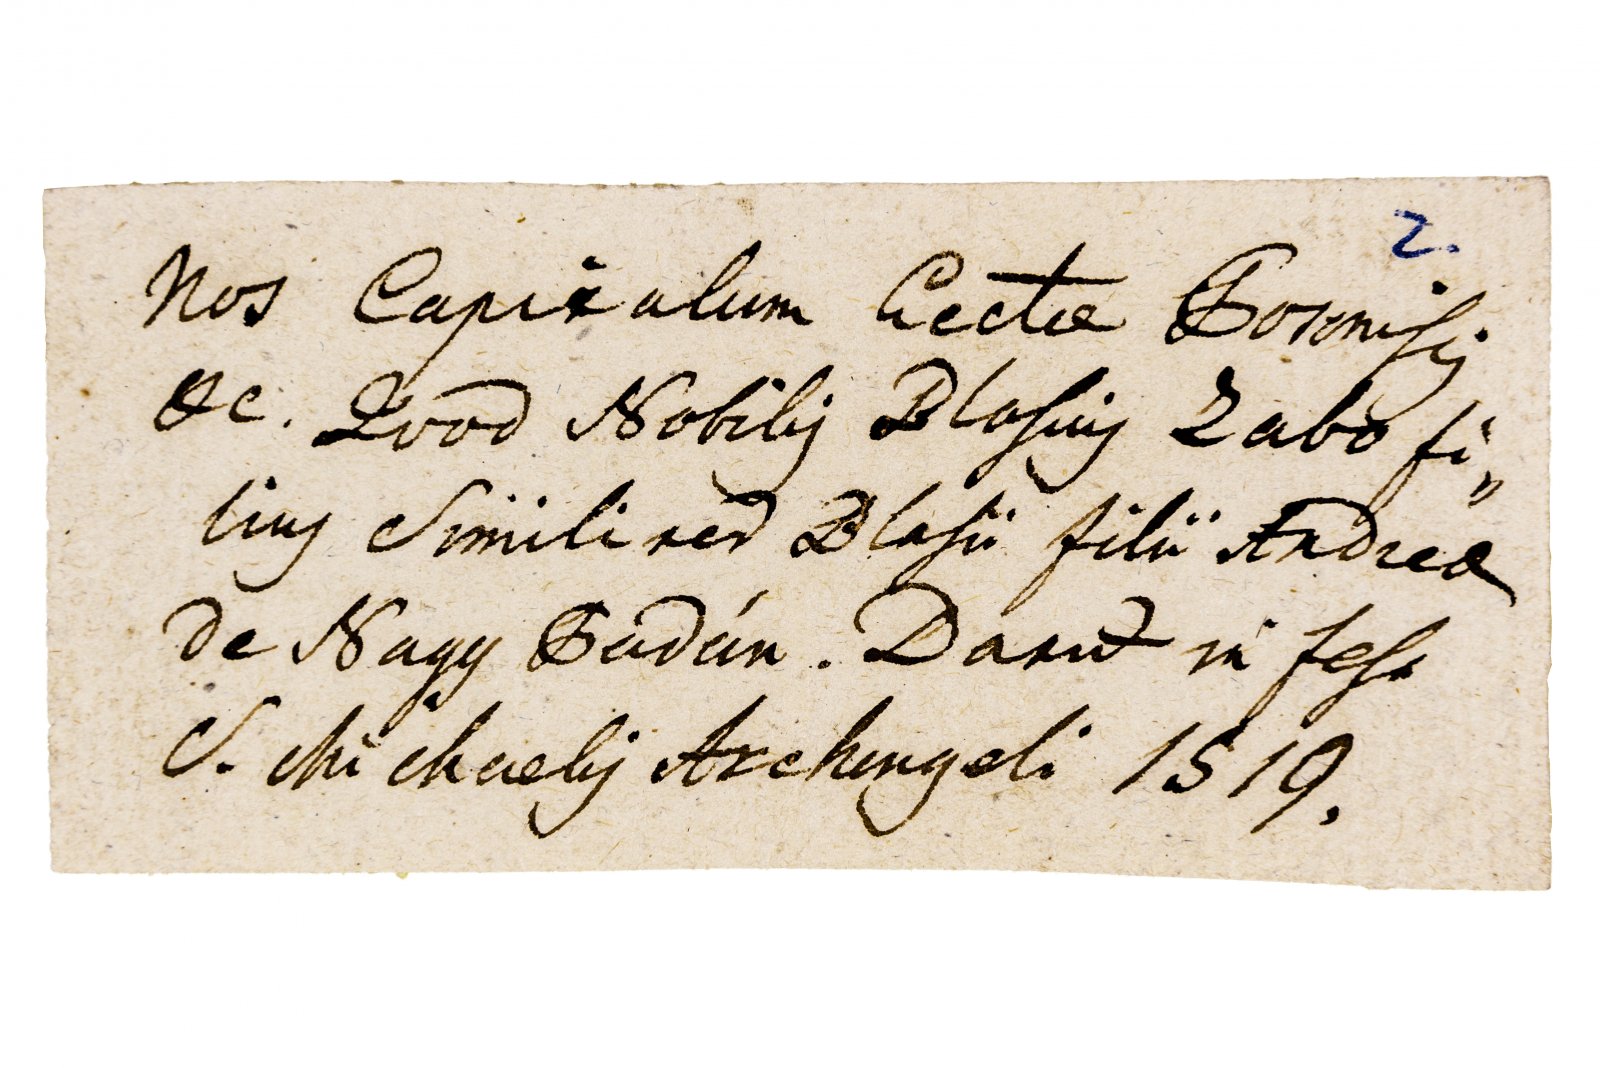 2.
Nos Capitulum Eccłae Bosnensis
&c. Quod Nobilis Blasius Zabo fi„
lius Similiter Blasii filii Andreae
de Nagy Budán. Datum in fest
S. Michaelis Archangeli 1519.